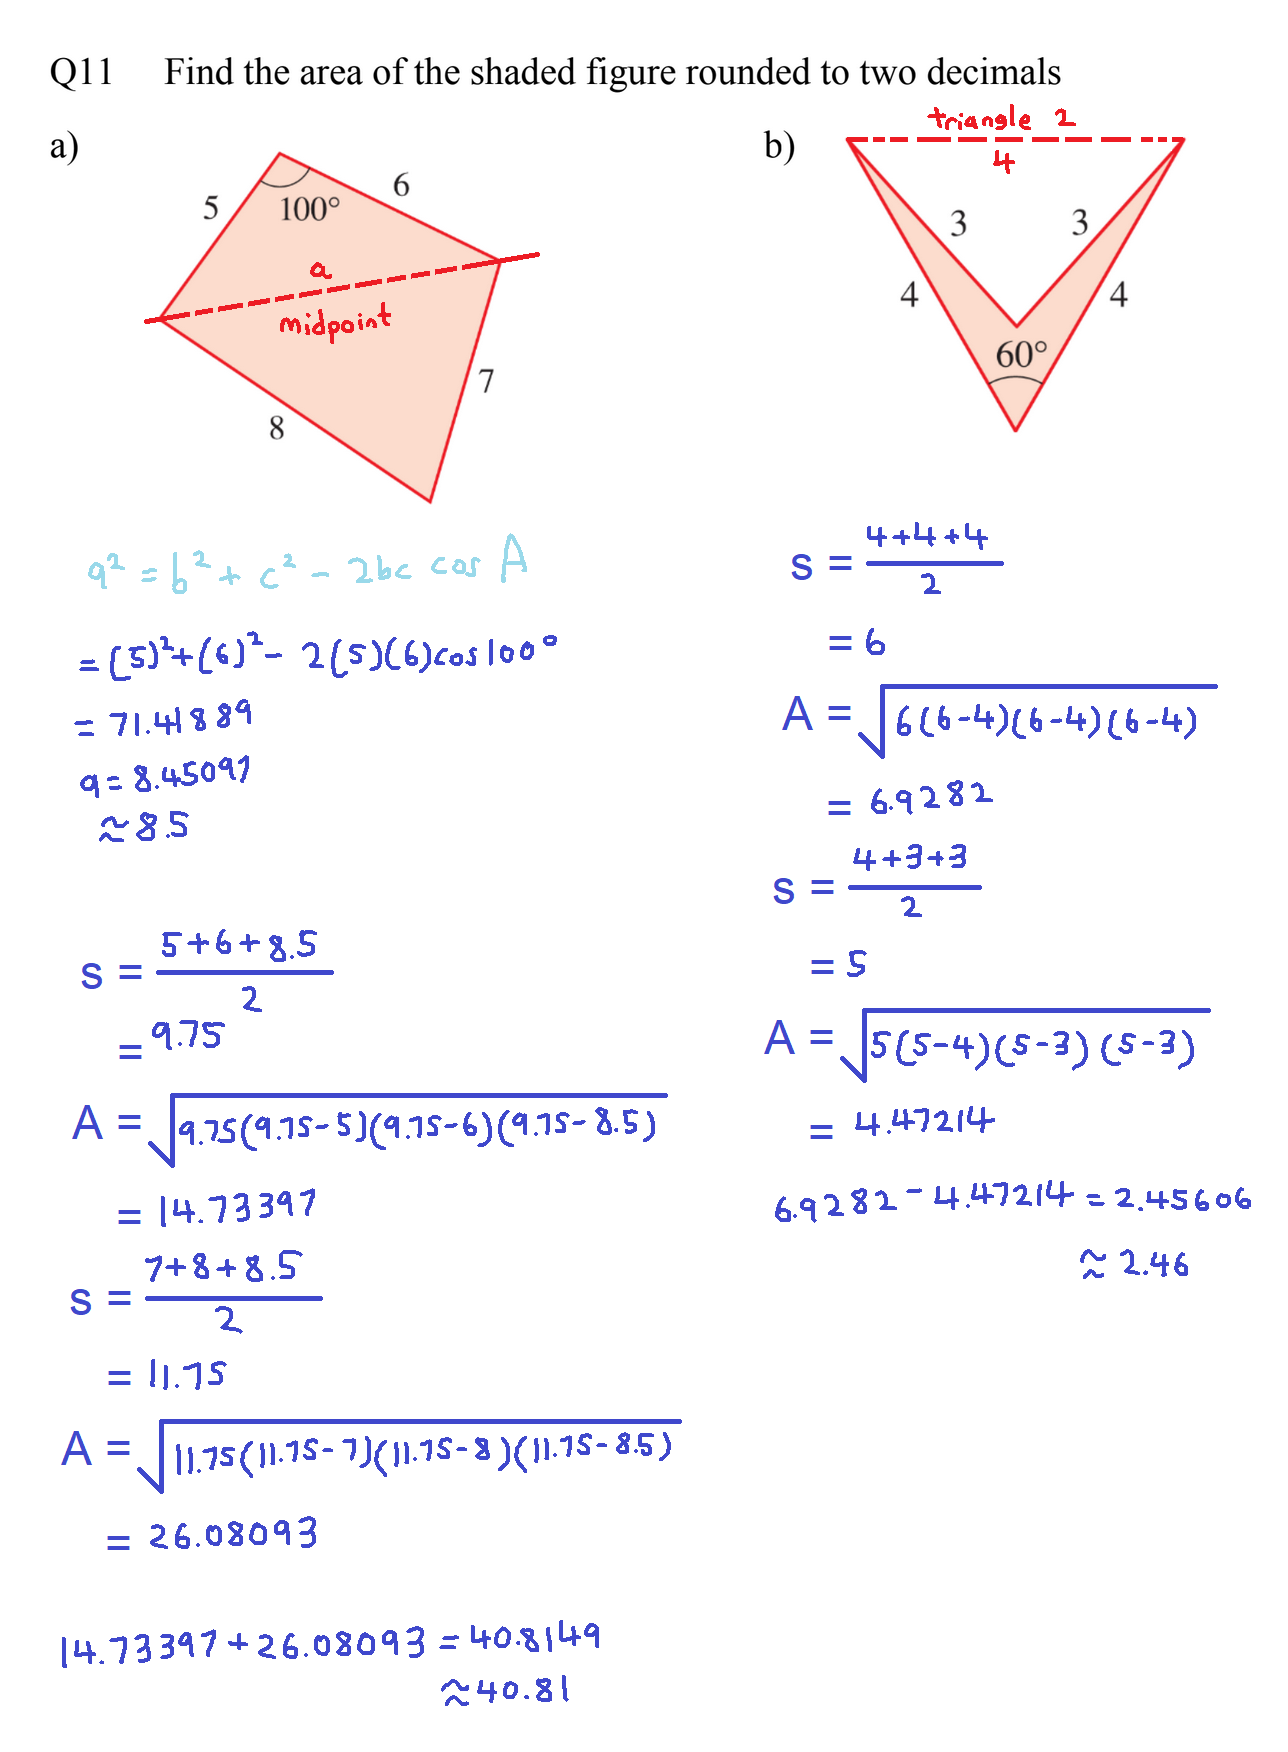 Q11 Find the area of the shaded figure rounded to two decimals
a)
5
6
100°
a
midpoint
7
8
a² = b² + c² - 2bc cos A
= (5)² + (6)² - 2(5)(6)cos100°
= 71.41889
a = 8.45097
≈ 8.5
s = 5+6+8.5 / 2
= 9.75
A = √9.75(9.75-5)(9.75-6)(9.75-8.5)
= 14.73397
s = 7+8+8.5 / 2
= 11.75
A = √11.75(11.75-7)(11.75-8)(11.75-8.5)
= 26.08093
14.73397 + 26.08093 = 40.8149
≈ 40.81
b)
triangle 2
4
3 3
4 4
60°
s = 4+4+4 / 2
= 6
A = √6(6-4)(6-4)(6-4)
= 6.9282
s = 4+3+3 / 2
= 5
A = √5(5-4)(5-3)(5-3)
= 4.47214
6.9282 - 4.47214 = 2.45606
≈ 2.46